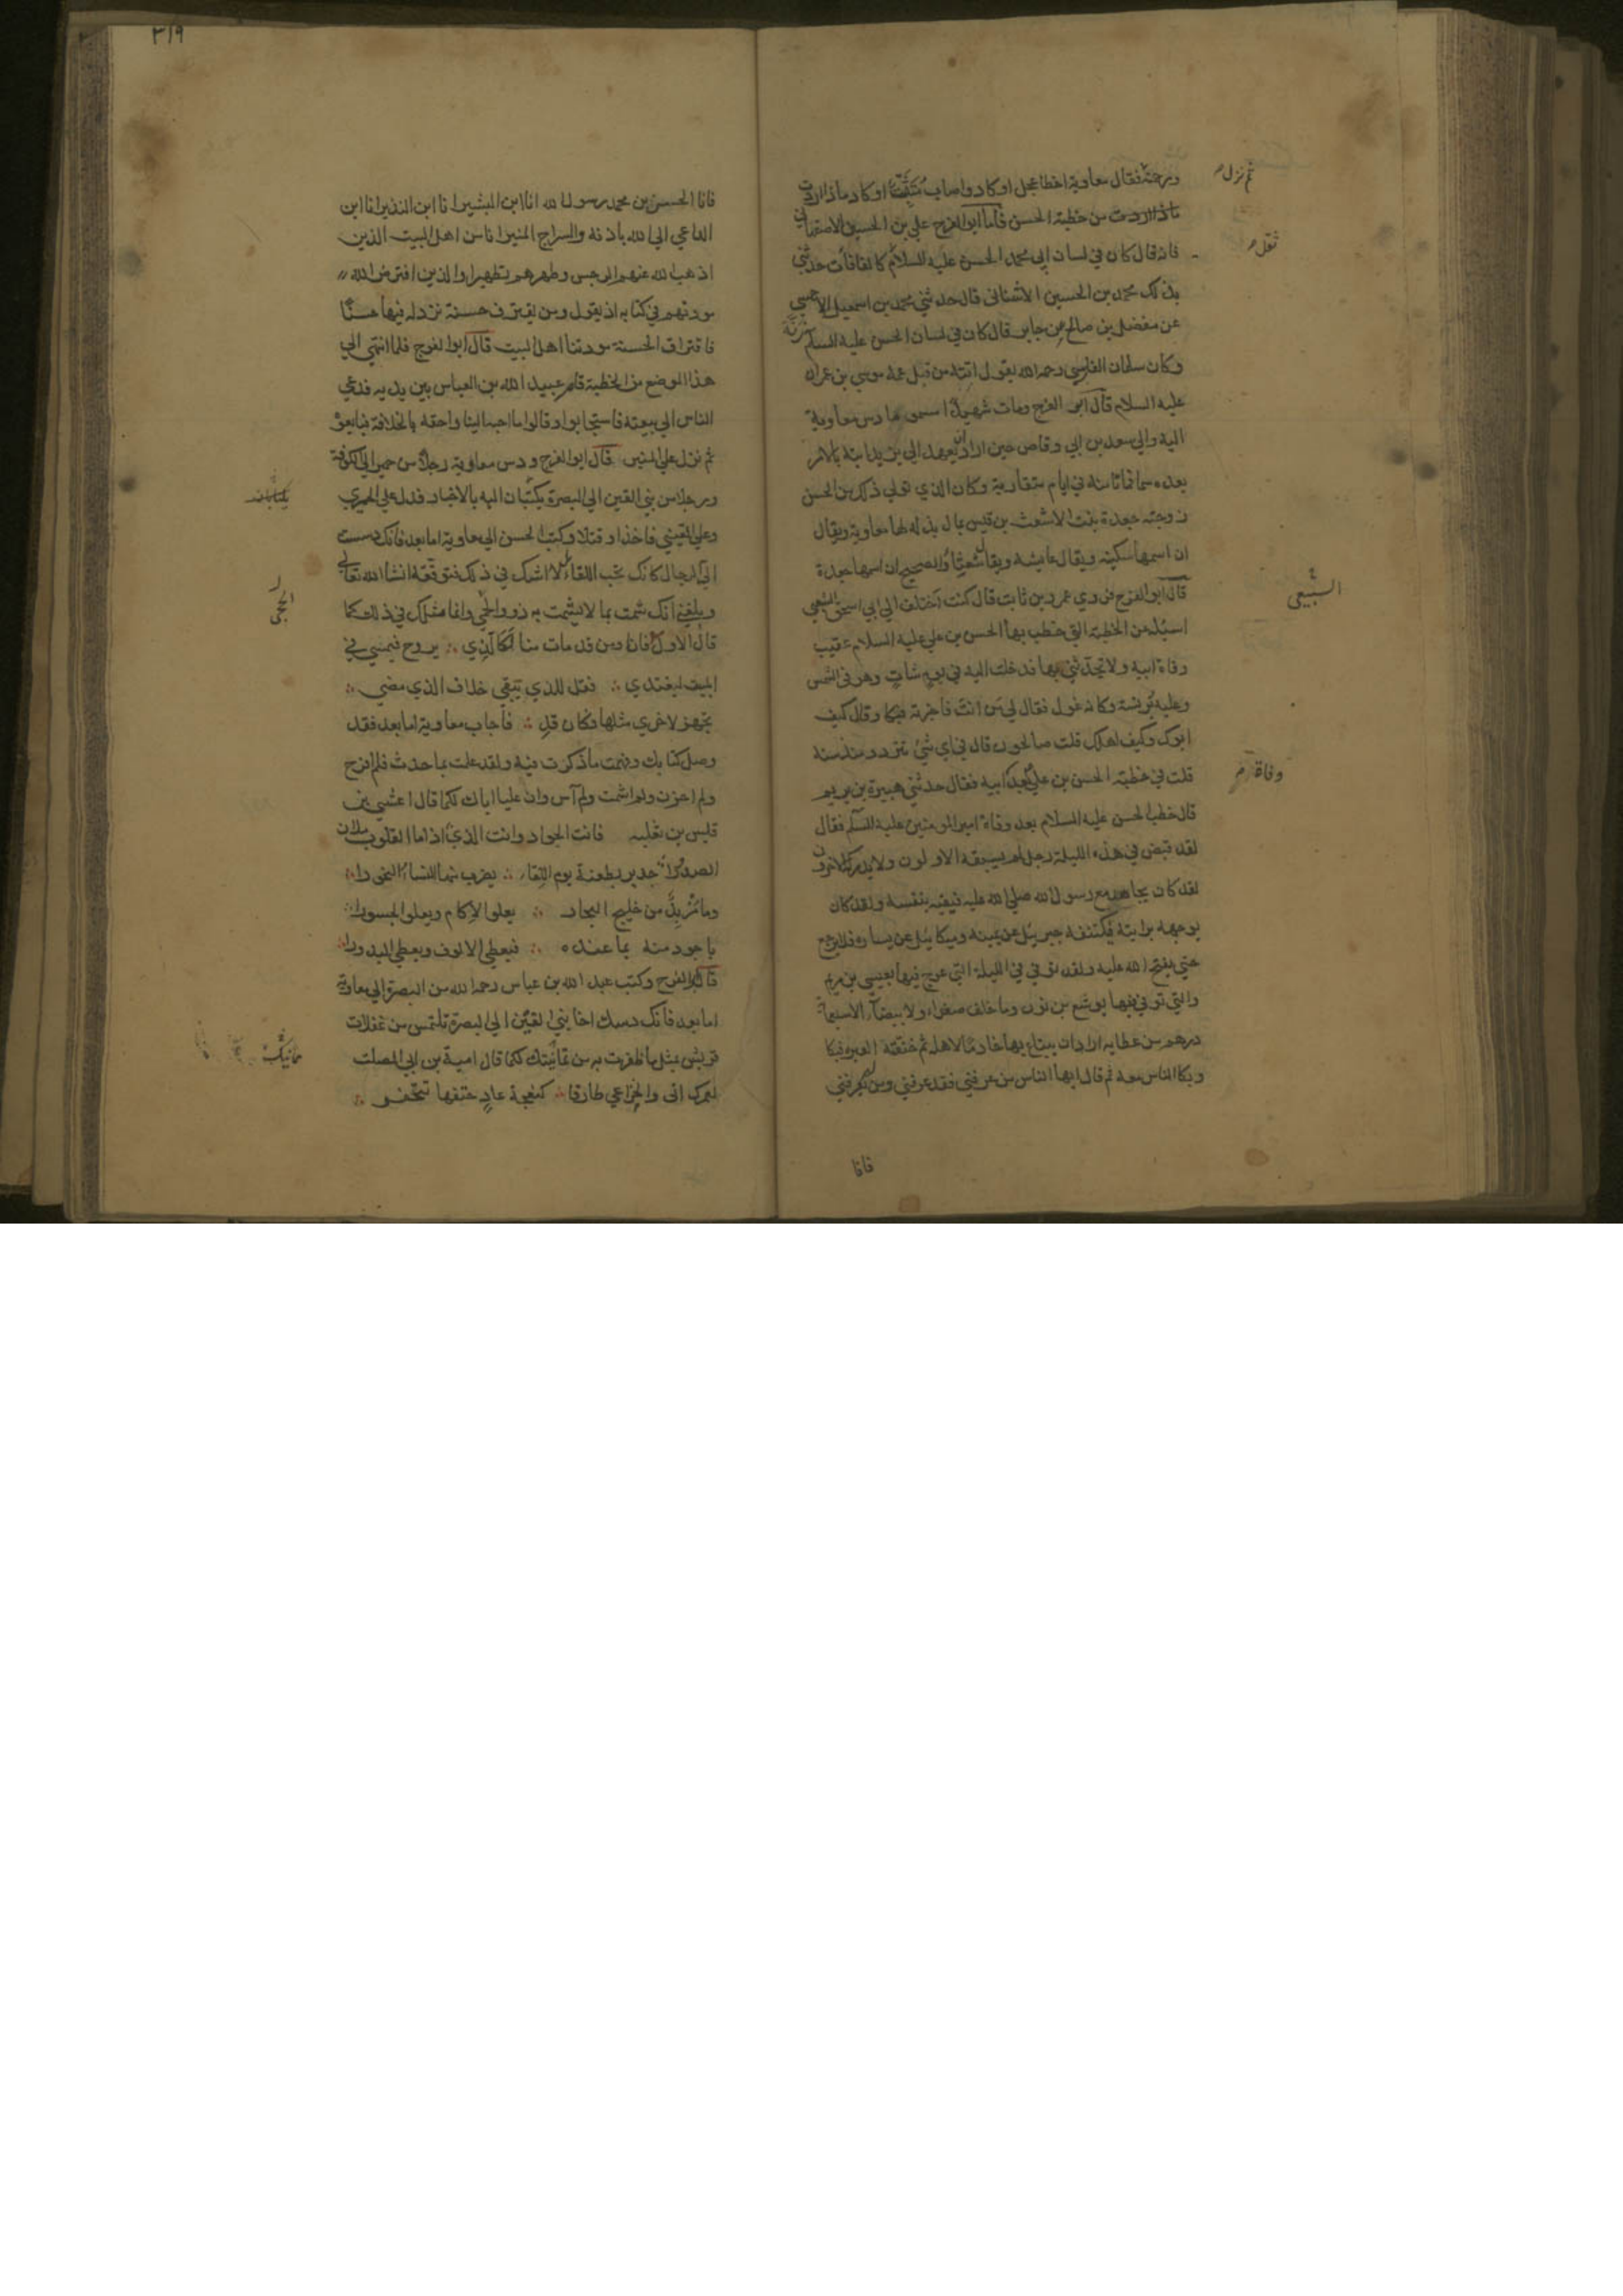 ثم نزل
ورحمة فقال معاوية اخطا عجل او كاد واصاب متثبت او كاد ماذا اردت
ماذا اردت من خطبة الحسن فاما ابو الفرج علي بن الحسين الاصفهاني
ثقل
فانه قال كان في لسان ابي محمد الحسن عليه السلام كالفافاة حدثني
بذلك محمد بن الحسين الاشناني قال حدثني محمد بن اسمعيل الاحمسي
عن مفضل بن صالح عن جابر قال كان في لسان الحسن عليه السلام رتة
وكان سلمان الفارسي رحمه الله يقول اتته من قبل عمه موسي بن عمران
عليه السلام قال ابو الفرج ومات شهيدا مسموما دس معاوية
اليه والي سعد بن ابي وقاص حين اراد ان يعهد الي يزيد ابنه بالامر
بعده سما فماتا منه في ايام متقاربة وكان الذي تولي ذلك من الحسن
زوجته جعدة بنت الاشعث بن قيس بمال بذله لها معاوية ويقال
ان اسمها سكينة ويقال عايشة ويقال شعثا والصحيح ان اسمها جعدة
السبيعي
قال ابو الفرج فروي عمرو بن ثابت قال كنت اختلف الي ابي اسحق السبيعي
اسئله عن الخطبة التي خطب بها الحسن بن علي عليه السلام عقيب
وفاة ابيه ولا يحدثني بها فدخلت اليه في يوم شات وهو في الشمس
وعليه برنسه وكانه غول فقال لي من انت فاخبرته فبكا وقال كيف
ابوك وكيف اهلك قلت صالحون قال في اي شئ تتردد منذ سنة
وفاة
قلت في خطبة الحسن بن علي بعد ابيه فقال حدثني هبيرة بن يريم
قال خطب الحسن عليه السلام بعد وفاة امير المومنين عليه السلام فقال
لقد قبض في هذه الليلة رجل لم يسبقه الاولون ولا يدركه الاخرون
لقد كان يجاهد مع رسول الله صلي الله عليه فيقيه بنفسه ولقد كان
يوجهه برايته فيكتنفه جبرئيل عن يمينه وميكائيل عن يساره فلا يرجع
حتي يفتح الله عليه ولقد توفي في الليلة التي عرج فيها بعيسي بن مريم
والتي توفي فيها يوشع بن نون وما خلف صفراء ولا بيضاء الا سبعمائة
درهم من عطايه اراد ان يبتاع بها خادما لاهله ثم خنقته العبرة فبكا
وبكا الناس معه ثم قال ايها الناس من عرفني فقد عرفني ومن لم يعرفني
فانا
٣١٩
فانا الحسن بن محمد رسول الله انا ابن البشير انا ابن النذير انا ابن
الداعي الي الله باذنه والسراج المنير انا من اهل البيت الذين
اذهب الله عنهم الرجس وطهرهم تطهيرا والذين افترض الله
مودتهم في كتابه اذ يقول ومن يقترف حسنة نزد له فيها حسنا
فاقتراف الحسنة مودتنا اهل البيت قال ابو الفرج فلما انتهي الي
هذا الموضع من الخطبة قام عبيد الله بن العباس بين يديه فدعي
الناس الي بيعته فاستجابوا وقالوا ما احبه الينا واحقه بالخلافة فبايعوه
ثم نزل علي المنبر قال ابو الفرج ودس معاوية رجلا من حمير الي الكوفة
يكتبان
ورجلا من بني القين الي البصرة يكتبان اليه بالاخبار فدل علي الحميري
وعلي القيني فاخذا وقتلا وكتب الحسن الي معاوية اما بعد فانك دسست
الي الرجال كانك تحب اللقاء لا اشك في ذلك فتوقعه انشا الله تعالي
الحجي
وبلغني انك شمت بما لا يشمت به ذوو الحجي وانما مثلك في ذلك كما
قال الاول فانا ومن قد مات منا لكالذي ∴ يروح فيمسي في
المبيت ليغتدي ∴ فقل للذي يبقي خلاف الذي مضي ∴
تجهز لاخري مثلها فكان قد ∴ فاجاب معاوية اما بعد فقد
وصل كتابك وفهمت ماذكرت فيه ولقد علمت بما حدث فلم افرح
ولم احزن ولم اشمت ولم آس وان عليا اباك لكما قال اعشي بني
قيس بن ثعلبه فانت الجواد وانت الذي اذا ما القلوب ملان
الصدورا ∴ جدير بطعنة يوم اللقاء ∴ يضرب منها النساء النحورا ∴
وما مزبد من خليج البحار ∴ يعلو الاكام ويعلو الجسورا ∴
باجود منه بما عنده ∴ فيعطي الالوف ويعطي البدورا ∴
قال ابو الفرج وكتب عبد الله بن عباس رحمه الله من البصرة الي معاوية
اما بعد فانك ودسك اخا بني القين الي البصرة تلتمس من غفلات
قريش مثل ما ظفرت به من يمانيتك لكما قال امية بن ابي الصلت
لعمرك اني والخزاعي طارقا ∴ كنعجة عاد حتفها تتحفر ∴